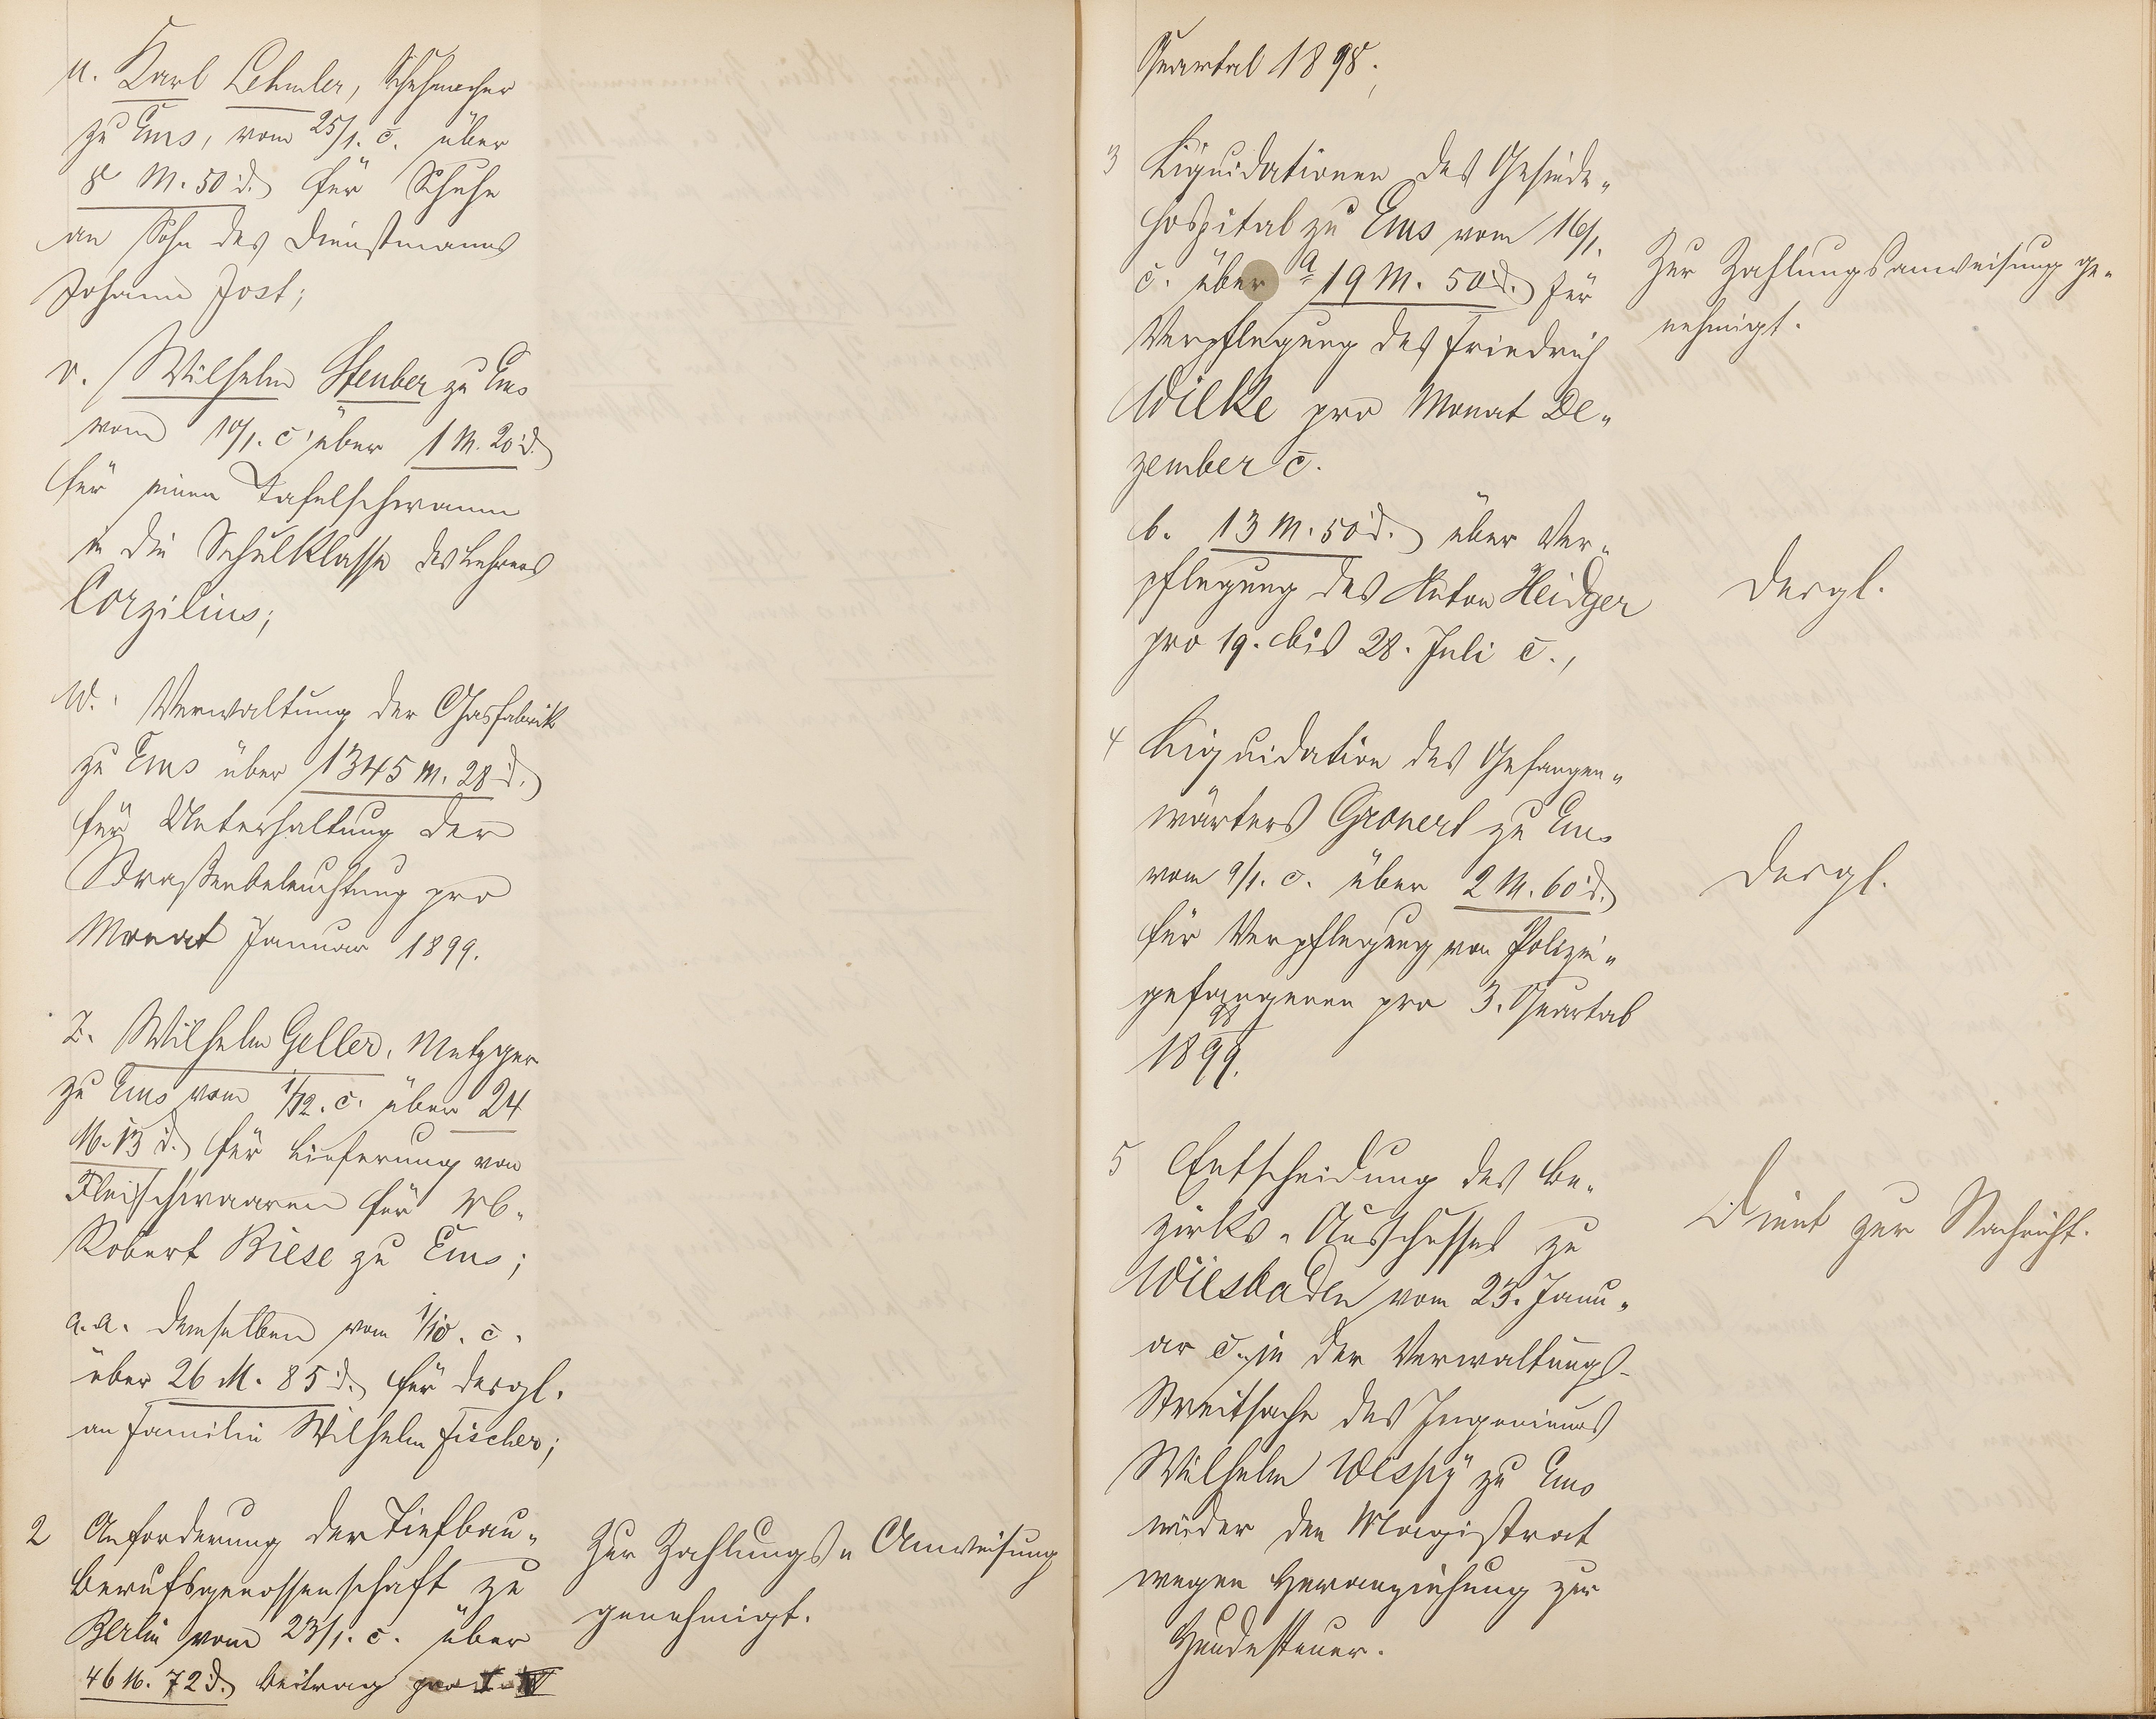 u. Karl Lehmler, Schuhmacher
zu Ems, vom 25/1. c. über
8 M. 50 d. für Schuhe
an Sohn des Dienstmanns
Johann Jost;
v. Wilhelm Steuber zu Ems
vom 10/1. c. über 1 M. 20 d.
für einen Tafelschwamm
in die Schulklasse des Lehrers
Corzilius;
w. Verwaltung der Gasfabrik
zu Ems über 1345 M. 28 d.
für Unterhaltung der
Straßenbeleuchtung pro
Monat Januar 1899.
z. Wilhelm Geller, Metzger
zu Ems vom 1/12. c. über 24
M. 13 d. für Lieferung von
Fleischwaaren für
Robert Biese zu Ems;
a.a. demselben vom 1/10. c.
über 26 M. 85 d. für dergl.
an Familie Wilhelm Fischer;
2 Anforderung der Tiefbau-
berufsgenossenschaft zu
Berlin vom 23/1. c. über
46 M. 72 d. Beitrag pro I-IV
Zur Zahlungs-Anweisung
genehmigt.
Quartal 1898.
3 Liquidationen des Gesinde-
hospital zu Ems vom 16/1.
c. über a 19 M. 50 d. für
Verpflegung des Friedrich
Wilke pro Monat De-
zember c.
Zur Zahlungsanweisung ge-
nehmigt.
b. 13 M. 50 d. über Ver-
pflegung des Anton Heidger
pro 19. bis 28. Juli c.,
Dergl.
4 Liquidation des Gefangen-
wärters Gronert zu Ems
vom 9/1. c. über 2 M. 60 d.
für Verpflegung von Polizei-
gefangenen pro 3. Quartal
98
1899.
Dergl.
5 Entscheidung des Be-
zirks-Ausschusses zu
Wiesbaden vom 23. Janu-
ar c. in der Verwaltungs-
Streitsache des Ingenieurs
Wilhelm zu Ems
wider den Magistrat
wegen Heranziehung zur
Hundesteuer.
Dient zur Nachricht.